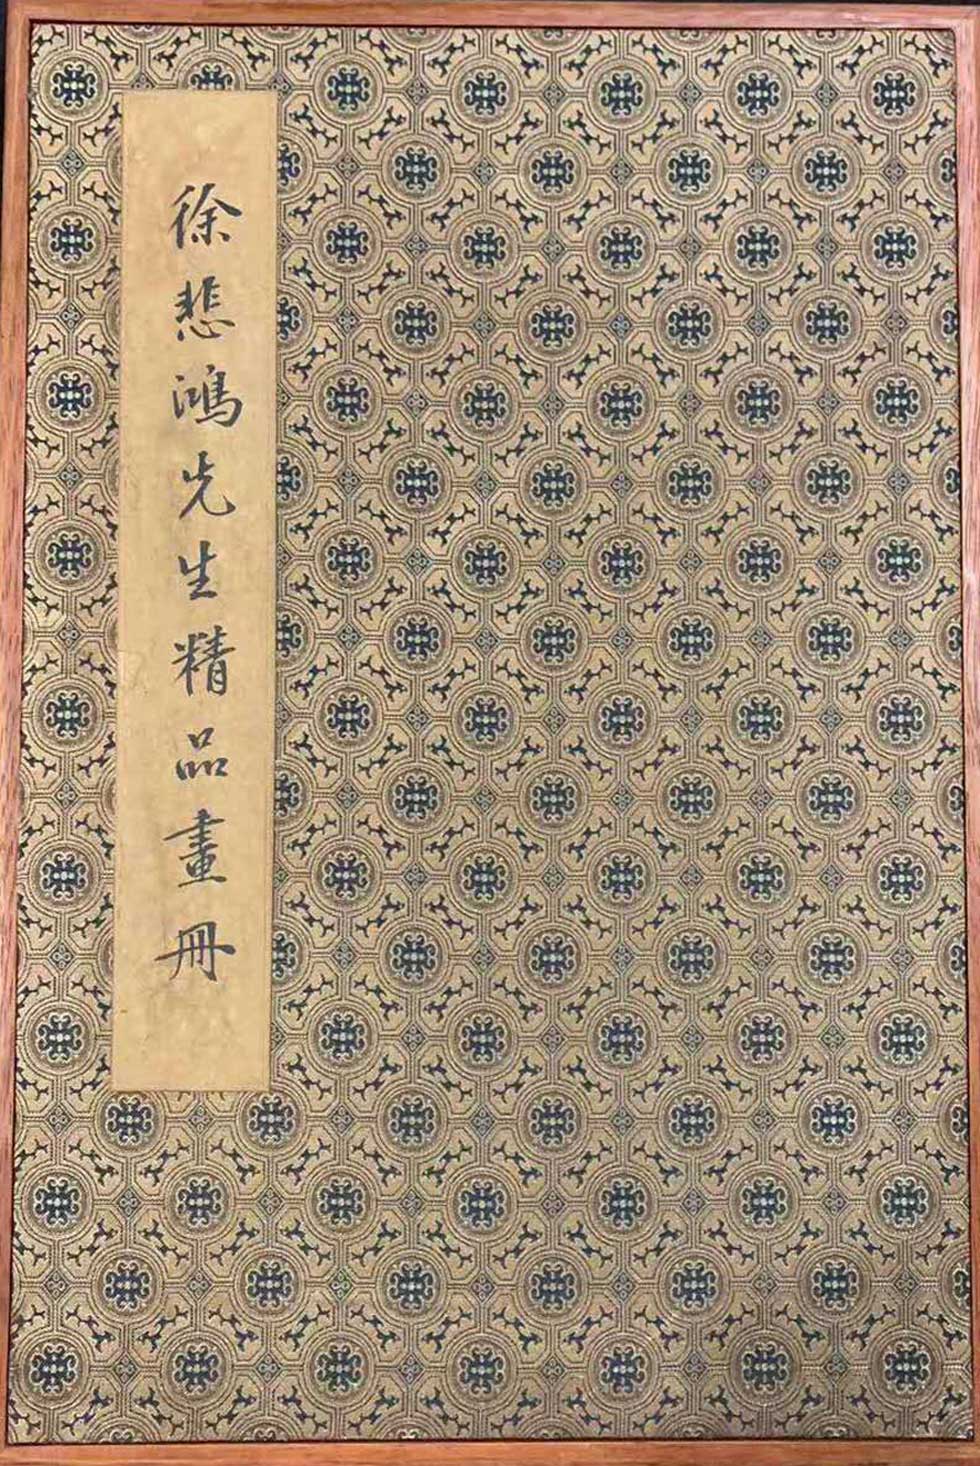 徐悲鴻先生精品畫冊